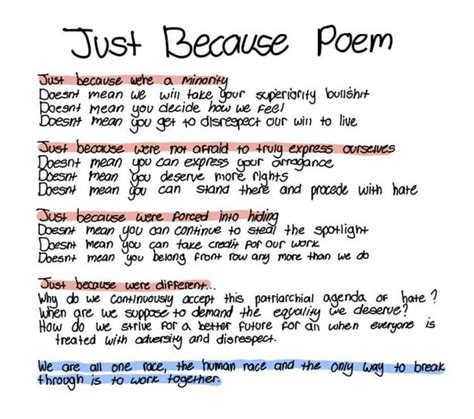 Just Because Poem
Just because we're a minority
Doesnt mean we will take your superiority bullshit
Doesnt mean you decide how we feel
Doesnt mean you get to disrespect our will to live
Just because were not afraid to truly express ourselves
Doesnt mean you can express your arragance
Doesnt mean you deserve more rights
Doesnt mean you can stand there and procede with hate
Just because were forced into hiding
Doesnt mean you can continue to steal the spotlight
Doesnt mean you can take credit for our work
Doesnt mean you belong front row any more than we do
Just because were different...
Why do we continuously accept this patriarchial agenda of hate?
When are we suppose to demand the equality we deserve?
How do we strive for a better future for an when everyone is
treated with adversity and disrespect.
We are all one race, the human race and the only way to break
through is to work together.